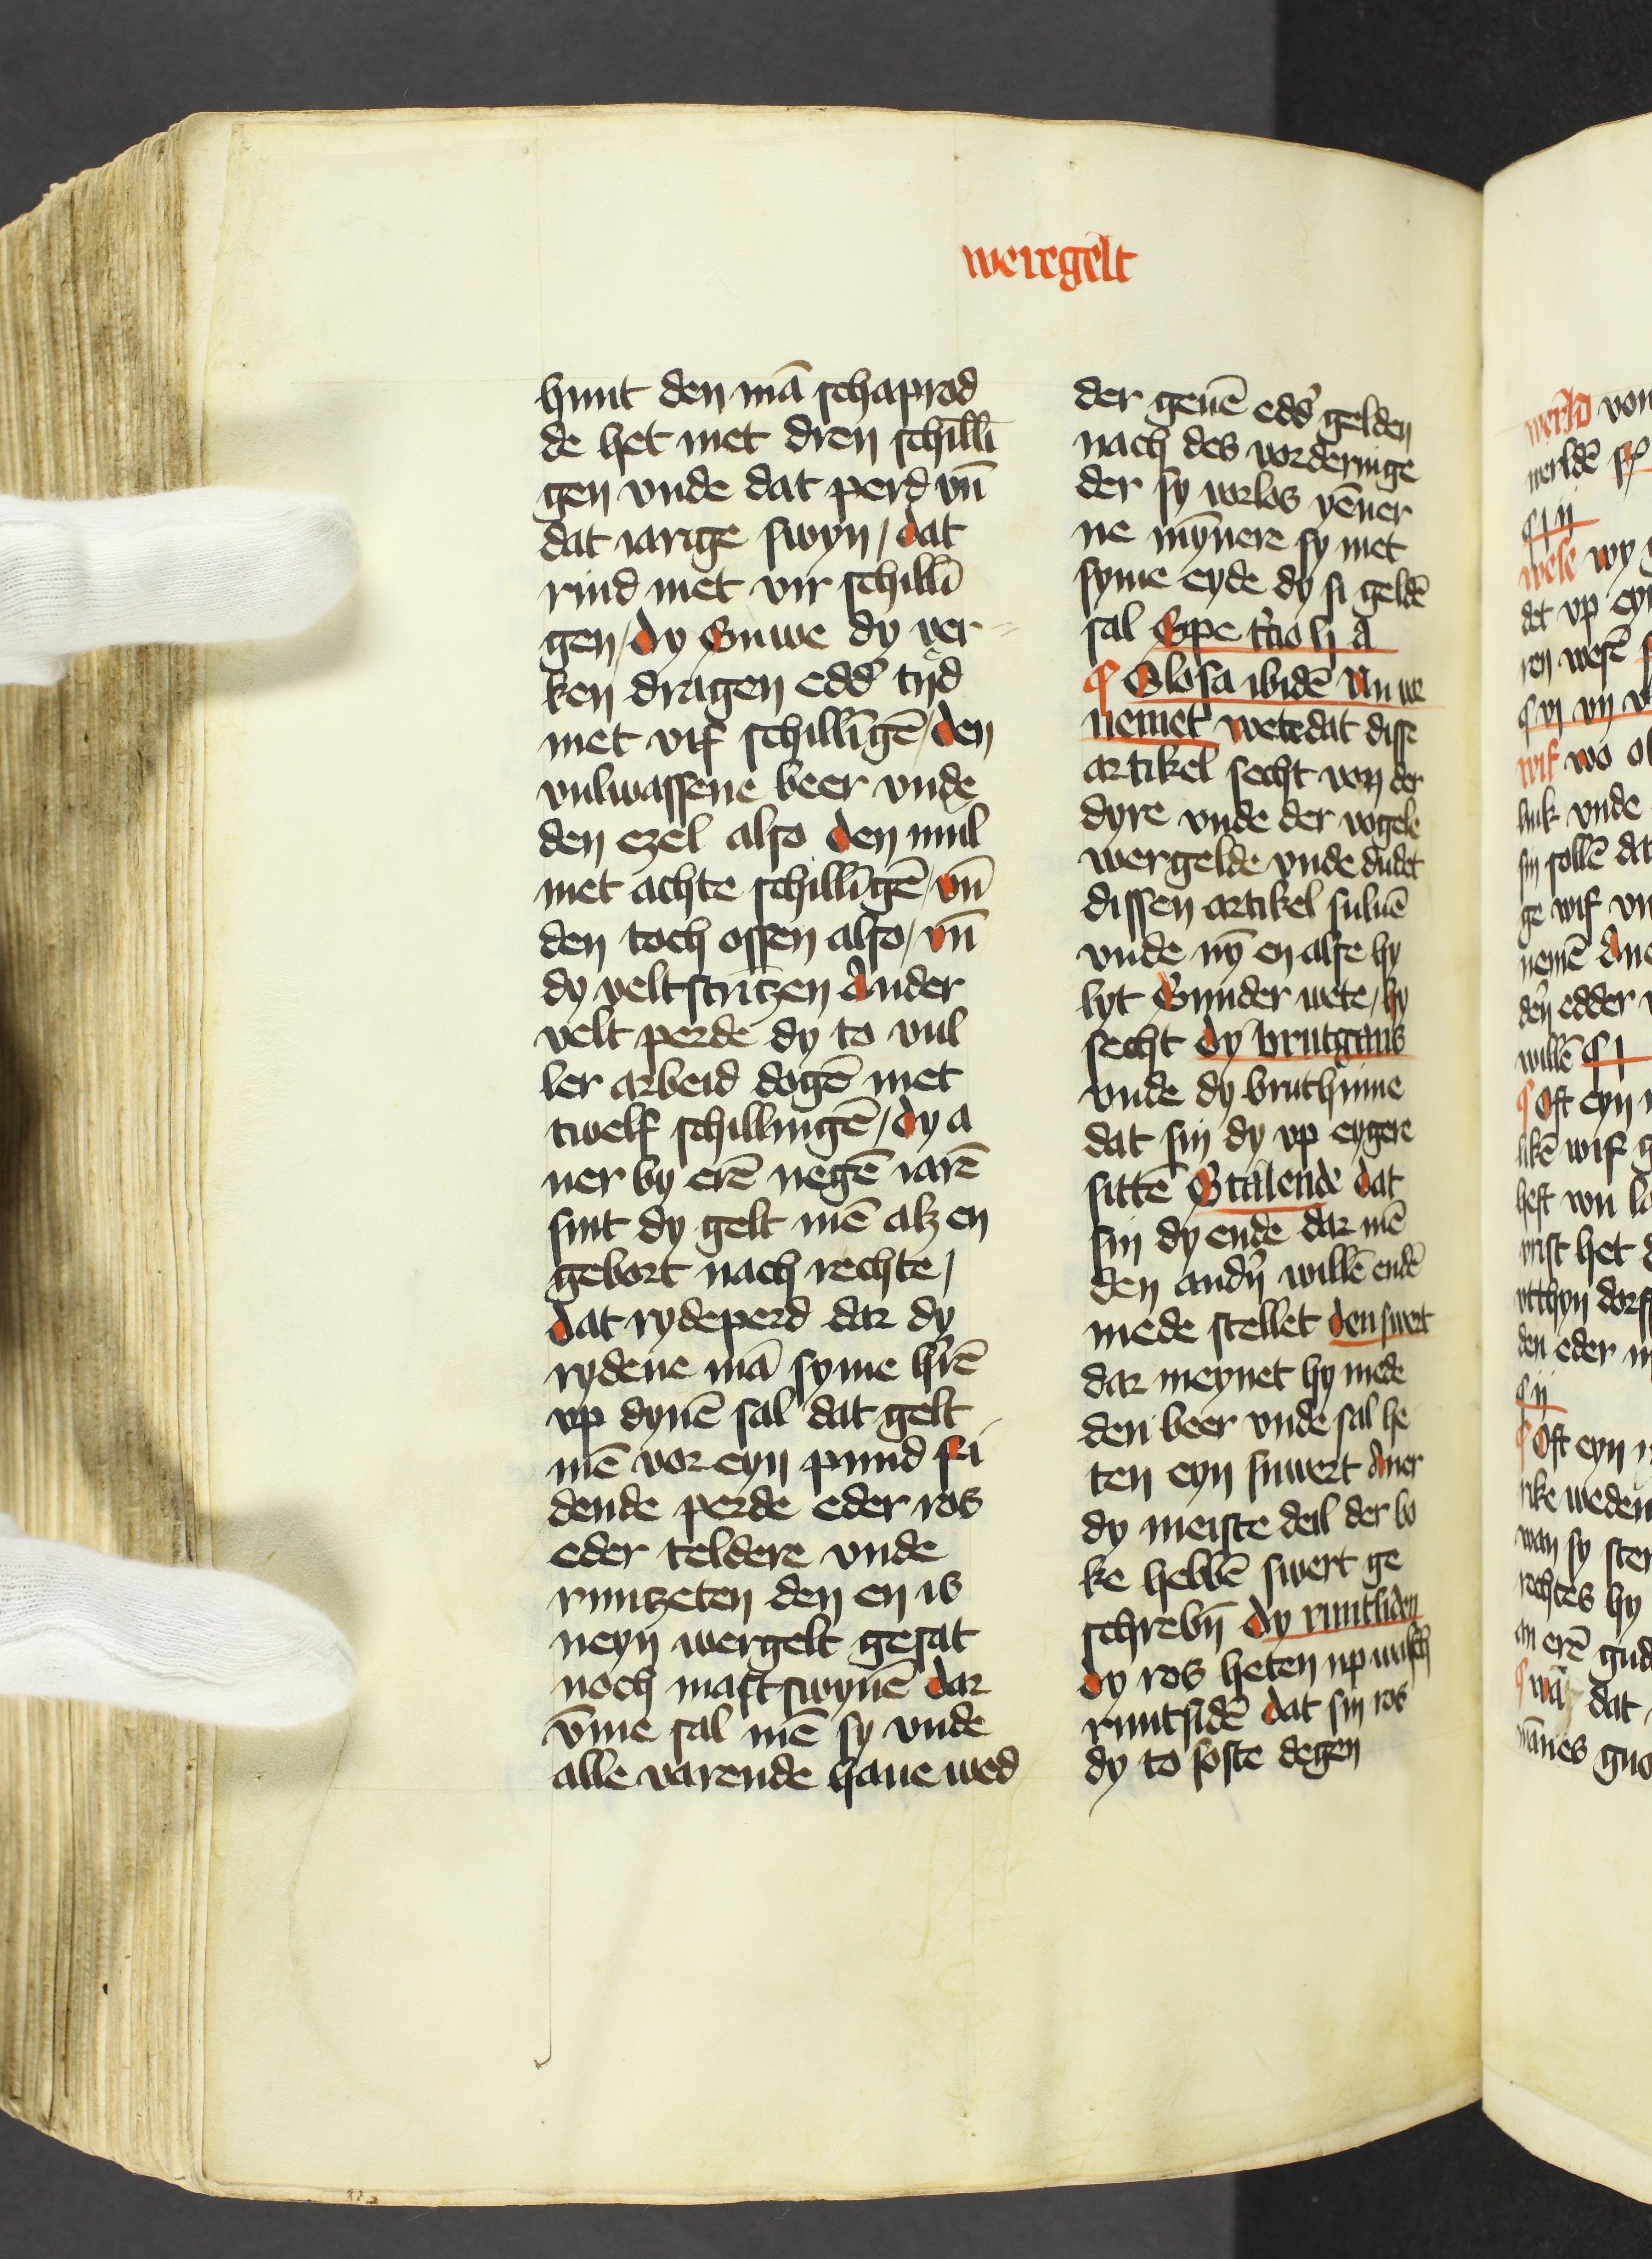 weregelt
hunt den mā schaprod
de het met dren schilli
gen vnde dat perd vn̄
dat iarige swyn / dat
rind met vir schillī
gen / dy Suwe dy ver
ken dragen edd' tijd
met vif schillīgē / den
vulwassene beer vnde
den ezel also den mul
met achte schillīgē / vn̄
den toch ossen also / vn̄
dy velt stritzen Ander
velt perde dy to vul
ler arbeid dogē met
twelf schillingē / dy a
ner by erē negē iarē
sint dy gelt mē alz en
gebort nach rechte /
dat rydeperd dar dy
rydene mā syme h'rē
vp dynē sal dat gelt
mē vor eyn pund stri
dende perde eder ros
eder teldere vnde
runtzeten den en is
neyn wergelt gesat
noch mastswynē dar
v̄me sal mē sy vnde
alle varende haue wed
der geuē edd' gelden
nach des vorderinge
der sy vorlos yēner
ne mȳnere sy met
syme eyde dy si geldē
sal Spe t'cio li a
¶ Glosa ibidē Vn we
nemet wete dat disse
artikel secht von der
dyre vnde der vogele
wergelde vnde dudet
dissen artikel suluē
vnde nȳ en alse hy
lyt Sunder wete / hy
secht dy brutgans
vnde dy bruthinne
dat sin dy vp eygere
sittē Stalende dat
sin dy ende dar mē
den and'n willē endē
mede stellet den swert
dar meynet hy mede
den beer vnde sal he
ten eyn suwert Aner
dy meiste deil der bo
ke hebbē swert ge
schrebn̄ dy runtsiden
dy ros heten up walsch
runtsidē dat sin ros
dy to soste degen
werld von
werldē
¶ i ij
wese wy
det vp eyn
ren wesē
¶ vi vij
wif wo
luk vnde
sin sollē dat
ge wif vn
nemē Ane
den edder
willē ¶ i
¶ Oft eyn
likē wif
heft
het
den eder
¶ ij
¶ Oft eyn
rike weden
wan sy ster
rechtes hy
an erē gud
¶ wā dat
mānes gud